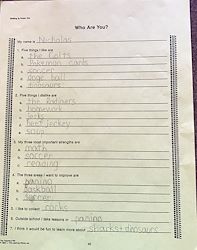 Who Are You?
My name is Nicholas
1. Five things I like are
a. the Colts
b. Pokemon cards
c. soccer
d. doge ball
e. dinosaurs
2. Five things I dislike are
a. the Raiders
b. homework
c.
d. beef jerkey
e. soup
3. My three most important strengths are
a. math
b. soccer
c. reading
4. The three areas I want to improve are
a.
b. baskball
c. soccer
5. I like to collect rocks
6. Outside school I take lessons in
7. I think it would be fun to learn more about sharks + dinosaurs